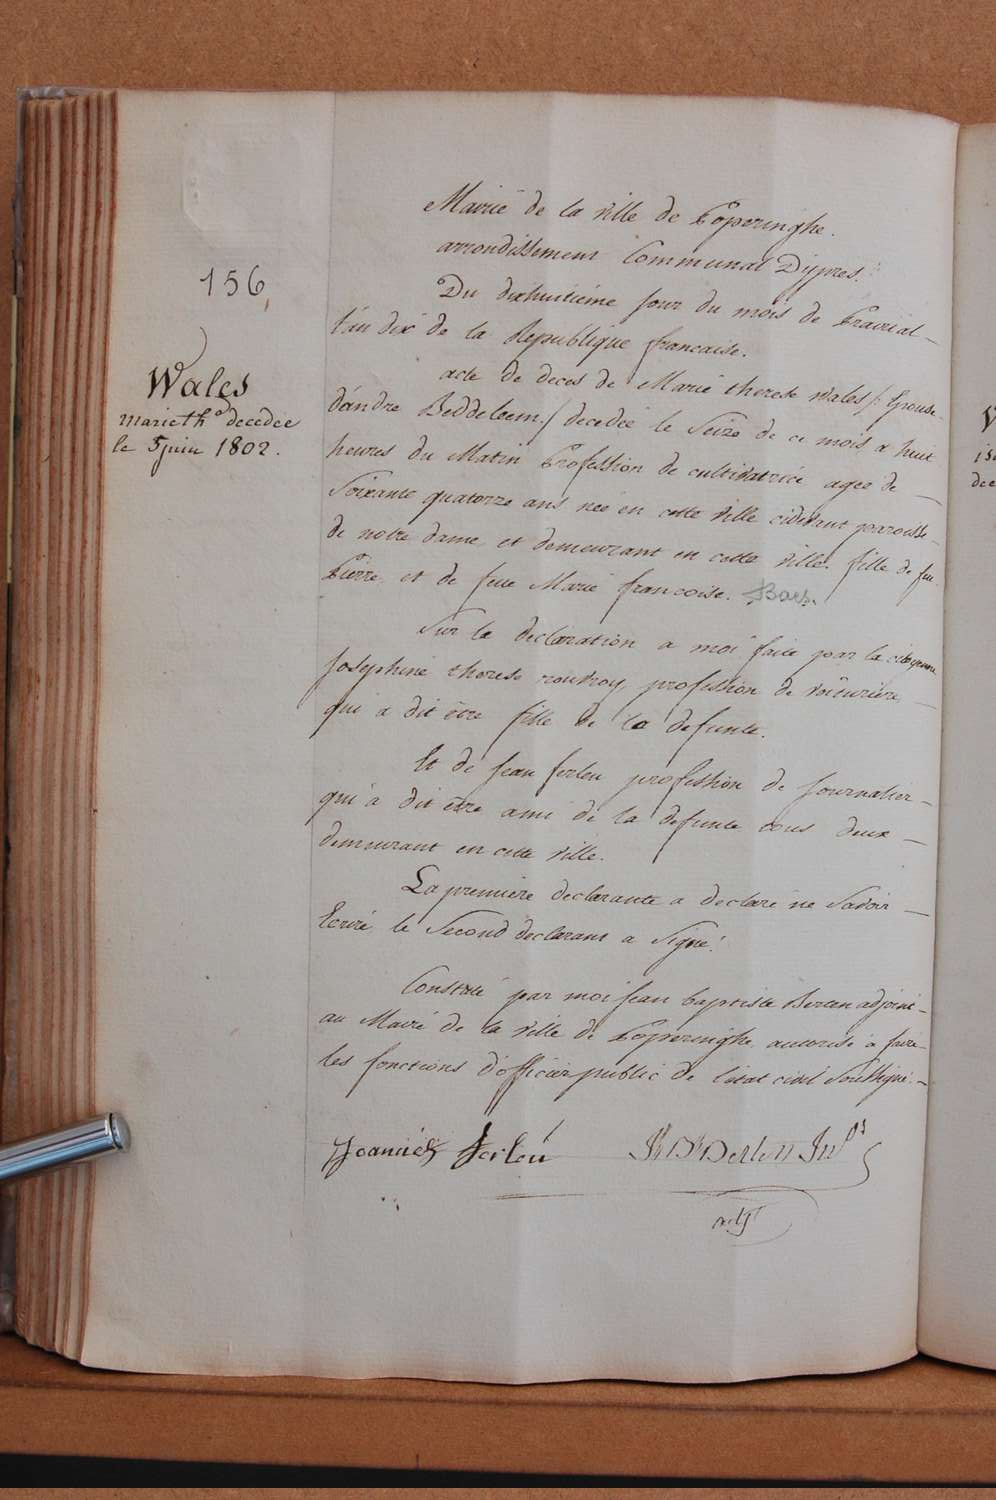 156
Wales
marie thᵉ decedee
le 5 juin 1802.
Mairie de la ville de Poperinghe.
arrondissement Communal D'ypres.
Du dixhuitiéme jour du mois de Prairial
l'an dix de la Republique francaise.
acte de deces de Marie therese wales /: Epouse
d'andre Beddeleem :/ decedée le Seize de ce mois a huit
heures du Matin Profession de cultivatrice agée de
Soixante quatorze ans née en cette ville cidevant paroisse
de notre dame, et demeurant en cette ville. fille de feu
Pierre, et de feue Marie francoise. Baes.
Sur la declaration a moi faite par la citoyenne
Josephine therese, profession de voiturière,
qui a dit être fille de la defunte.
Et de Jean ferleu profession de Journalier
qui a dit être ami de la defunte tous deux
demeurant en cette ville.
La première declarante a declaré ne Savoir
Ecrire, le Second declarant a Signé.
Constaté par moi Jean baptiste Berten adjoint
au Maire de la ville de Poperinghe, autorisé a faire
les fonctions d'officier public de l'état civil Soussigné.
Joannes Ferleu
Berten